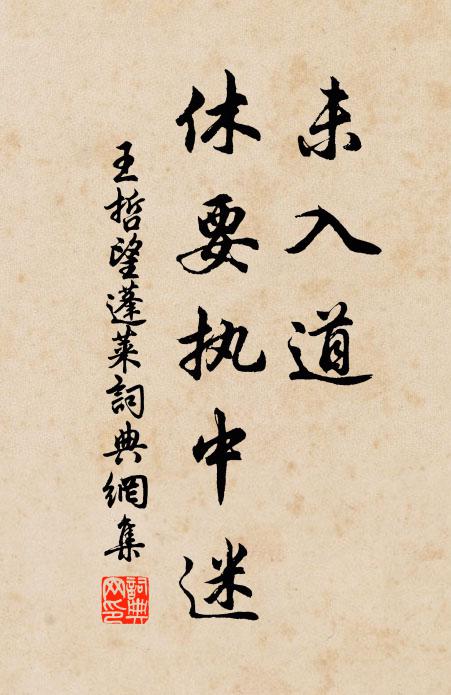 未入道
休要执中迷
王哲望蓬莱詞典網集
詞典
网印